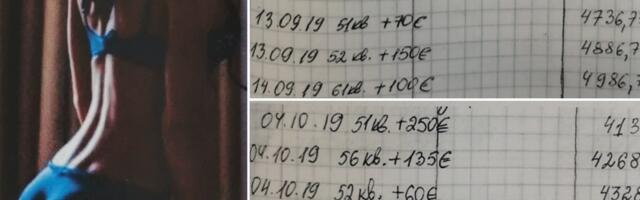 13.09.19 51кв +70€ 4736,7
13.09.19 52 кв. +150€ 4886,7
14.09.19 61кв. +100€ 4986,7
04.10.19 51кв. +250€ 413
04.10.19 56 кв. +135€ 4268
04.10.19 52 кв. +60€ 4328